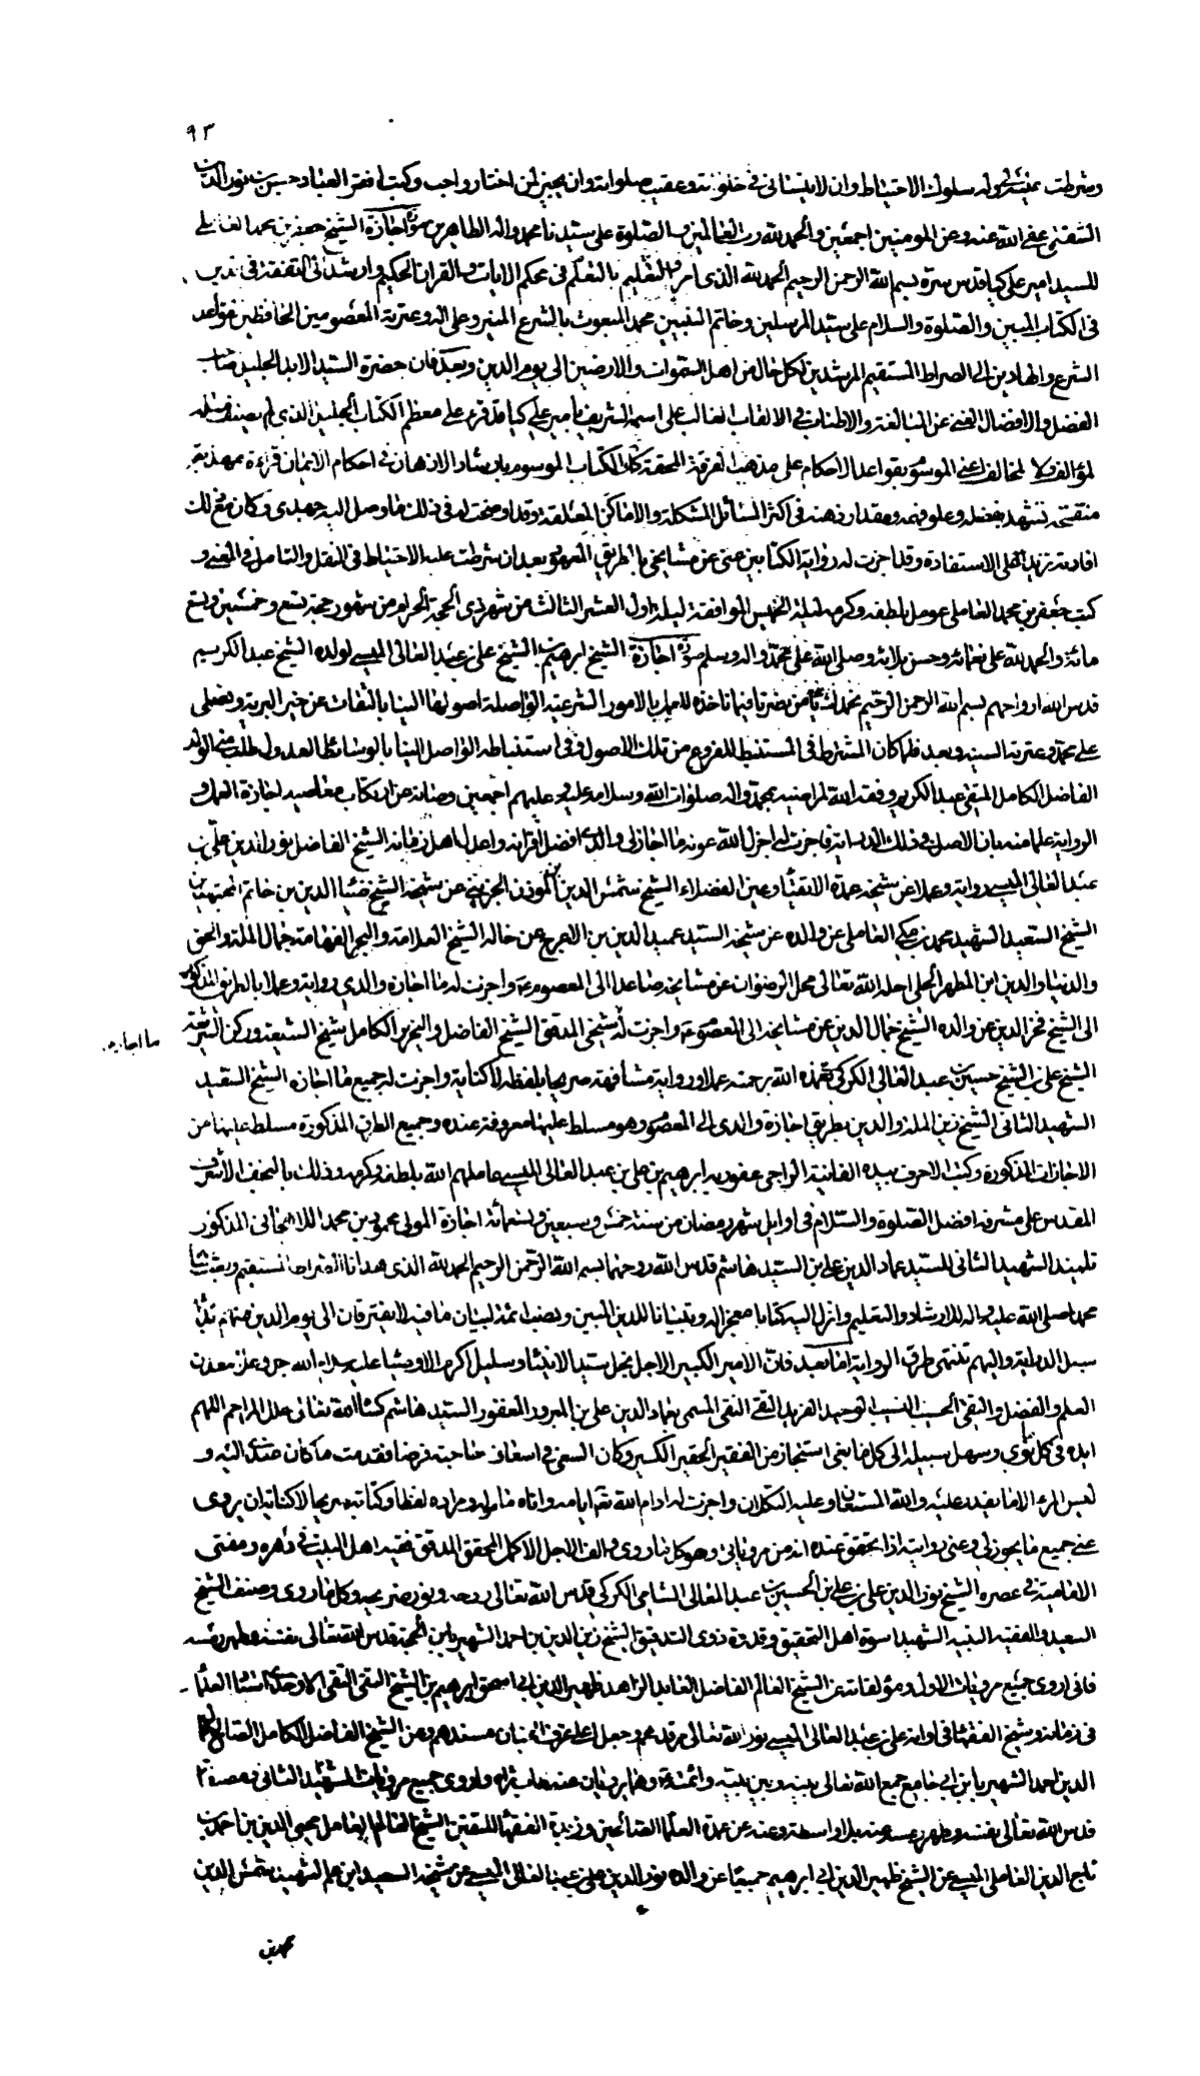 ٩٣
وشرطت عليه سلوك الاحتياط وان لا ينساني في خلوته وعقيب صلواته وان يجيز لمن اختار واحب وكتب افقر العباد حسين بن نور الدين
الشفتي عفى الله عنه وعن المومنين اجمعين والحمد لله رب العالمين والصلوة على سيدنا محمد واله الطاهرين صورة اجازة الشيخ جعفر بن محمد العاملي
للسيد امير علي كيا قدس سره بسم الله الرحمن الرحيم الحمد لله الذي امر بالتعليم والتعلم في محكم الايات والقران الحكيم وارشد الى التفقه في الدين
في الكتاب المبين والصلوة والسلام على سيد المرسلين وخاتم النبيين محمد المبعوث بالشرع المنير وعلى اله وعترته المعصومين الحافظين قواعد
الشرع والهادين الى الصراط المستقيم المرشدين لكل حال من اهل السموات والارضين الى يوم الدين وبعد فان حضرة السيد الايد الجليل صاحب
الفضل والافضال الغني عن المبالغة والاطناب في الالقاب الغالب على اسمه الشريف بامير علي كيا قد قرء على معظم الكتاب الجليل الذي لم يصنف مثله
لمؤالف ولا لمخالف اعني الموسوم بقواعد الاحكام على مذهب الفرقة المحقة وكذا الكتاب الموسوم بارشاد الاذهان في احكام الايمان قراءة مهذبة
منقحة تشهد بفضله وعلو فهمه ومقدار ذهنه في اكثر المسائل المشكلة والاماكن المعضلة وقد اوضحت له في ذلك ما وصل اليه جهدي وكان مع ذلك
افادته تزيد على الاستفادة وقد اجزت له رواية الكتابين عني عن مشايخي بالطريق المعهود بعد ان شرطت عليه الاحتياط في النقل والتامل في المعنى و
كتب جعفر بن محمد العاملي عومل بلطفه وكرمه ليلة الخميس الموافقة ليلة اول العشر الثالث من شهر ذي الحجة الحرام من شهور حجة تسع وخمسين وتسع
مائة والحمد لله على نعمائه وحسن بلائه وصلى الله على محمد واله وسلم صورة اجازة الشيخ ابراهيم بن الشيخ علي بن عبد العالي الميسي لولده الشيخ عبد الكريم
قدس الله ارواحهم بسم الله الرحمن الرحيم نحمدك يا من بصرتنا فيما ناخذه للعمل بالامور الشرعية الواصلة اصولها الينا بالثقات عن خير البرية ونصلي
على محمد وعترته السنية وبعد فلما كان المشترط في المستنبط للفروع من تلك الاصول وفي استنباطه الواصل الينا بالوسائط العدول طلب مني الولد
الفاضل الكامل المتقي عبد الكريم وفقه الله لمراضيه بمحمد واله صلوات الله وسلامه عليه وعليهم اجمعين وصانه عن ارتكاب معاصيه اجازة العمل و
الرواية علما منه بان الاصل في ذلك الدراية فاجزت له اجزل الله عونه ما اجاز لي والدي افضل اقرانه واعدل اهل زمانه الشيخ الفاضل نور الدين علي بن
عبد العالي الميسي رواية وعملا عن شيخه عمدة الاتقياء وعين الفضلاء الشيخ شمس الدين ابن المؤذن الجزيني عن شيخه الشيخ ضياء الدين بن خاتم المجتهدين
الشيخ السعيد الشهيد محمد بن مكي العاملي عن والده عن شيخه السيد عميد الدين بن الاعرج عن خاله الشيخ العلامة والبحر الفهامة جمال الملة والحق
والدنيا والدين ابن المطهر الحلي احله الله تعالى محل الرضوان عن مشايخه صاعدا الى المعصوم ع واجزت له ما اجازه والدي رواية وعملا بالطريق المذكور
الى الشيخ فخر الدين عن والده الشيخ جمال الدين عن مشايخه الى المعصوم ع واجزت له شيخي المدقق الشيخ الفاضل والنحرير الكامل شيخ الشيعة وركن الشريعة
ما اجازنيه
الشيخ علي بن الشيخ حسين بن عبد العالي الكركي تغمده الله برحمته عملا ورواية مشافهة صريحا بلفظه لا كتابة واجزت له جميع ما اجازه الشيخ السعيد
الشهيد الثاني الشيخ زين الملة والدين بطريق اجازة والدي الى المعصوم وهو مسلط عليها معروفة عنده وجميع الطرق المذكورة مسلط عليها من
الاجازات المذكورة وكتب الاحرف بيده الفانية الراجي عفو ربه ابراهيم بن علي بن عبد العالي الميسي عاملهم الله بلطفه وكرمه وذلك بالنجف الاشرف
المقدس على مشرفه افضل الصلوة والسلام في اوايل شهر رمضان من سنة خمس وسبعين وتسعمائة اجازة المولى محمود بن محمد اللاهجاني المذكور
تلميذ الشهيد الثاني للسيد عماد الدين علي بن السيد هاشم قدس الله روحهما بسم الله الرحمن الرحيم الحمد لله الذي هدانا الصراط المستقيم وبعث نبينا
محمدا صلى الله عليه واله للارشاد والتعليم وانزل اليه كتابا معجزا له وتبيانا للدين المبين ونصب ائمة لبيان ما فيه لا يفترقان الى يوم الدين منهم تبين
سبل الدراية واليهم تنتهي طرق الرواية اما بعد فان الامير الكبير الاجل نجل سيد الانبياء وسليل اكرم الاوصياء عليه سلام الله جرى على معدن
العلم والفضل والتقى الحسيب النسيب الوحيد الفريد التقي النقي المسمى بعماد الدين علي بن المبرور المغفور السيد هاشم كساه الله تعالى حلل المراحم اللهم
ايده في كل نوى وسهل سبيله الى كل ما يبتغي استجاز من الفقير الحقير الكسير وكان السعي في اسعاف حاجته فرضا فقدمت ما كان عندي اليه و
ليس المرء الا ما يقدر عليه والله المستعان وعليه التكلان واجزت له ادام الله تع ايامه واتاه مامله ومراده لفظا وكتابة صريحا لا كناية ان يروي
عني جميع ما يجوز لي وعني روايته اذا تحقق عنده انه من مروياتي وهو كل ما روى والف الاجل الاكمل المحقق المدقق فقيه اهل البيت في دهره ومفتي
الامامية في عصره الشيخ نور الدين علي بن علي بن الحسين بن عبد العالي الشامي الكركي قدس الله تعالى روحه ونور ضريحه وكل ما روى وصنف الشيخ
السعيد والفقيه النبيه الشهيد اسوة اهل التحقيق وقدوة ذوي التدقيق الشيخ زين الدين بن احمد الشهير بابن الحجة قدس الله تعالى نفسه وطهر رمسه
فاني اروي جميع مرويات الاول ومؤلفاته عن الشيخ العالم الفاضل العابد الزاهد ظهير الدين ابي اسحق ابراهيم بن الشيخ التقي النقي الاوحدي استاد العلماء
في زمانه وشيخ الفقهاء في اوانه علي بن عبد العالي الميسي نور الله تعالى مرقدهم وجعل اعلى غرف الجنان مسندهم وعن الشيخ الفاضل الكامل الصالح جمال
الدين احمد الشهير بابن ابي جامع جمع الله تعالى بينه وبين نبيه وائمته وهما يرويان عنه طاب ثراه واروي جميع مرويات الشهيد الثاني ومصنفاته
قدس الله تعالى نفسه وطهر رمسه عنه بلا واسطة وعنه عن عمدة العلماء الصالحين وزبدة الفقهاء المتقين الشيخ العالم العامل محيي الدين بن احمد بن
تاج الدين العاملي الميسي عن الشيخ ظهير الدين ابي ابراهيم جميعا عن والده نور الدين علي بن عبد العالي الميسي عن شيخه السعيد ابن عم الشهيد شمس الدين
محمد بن